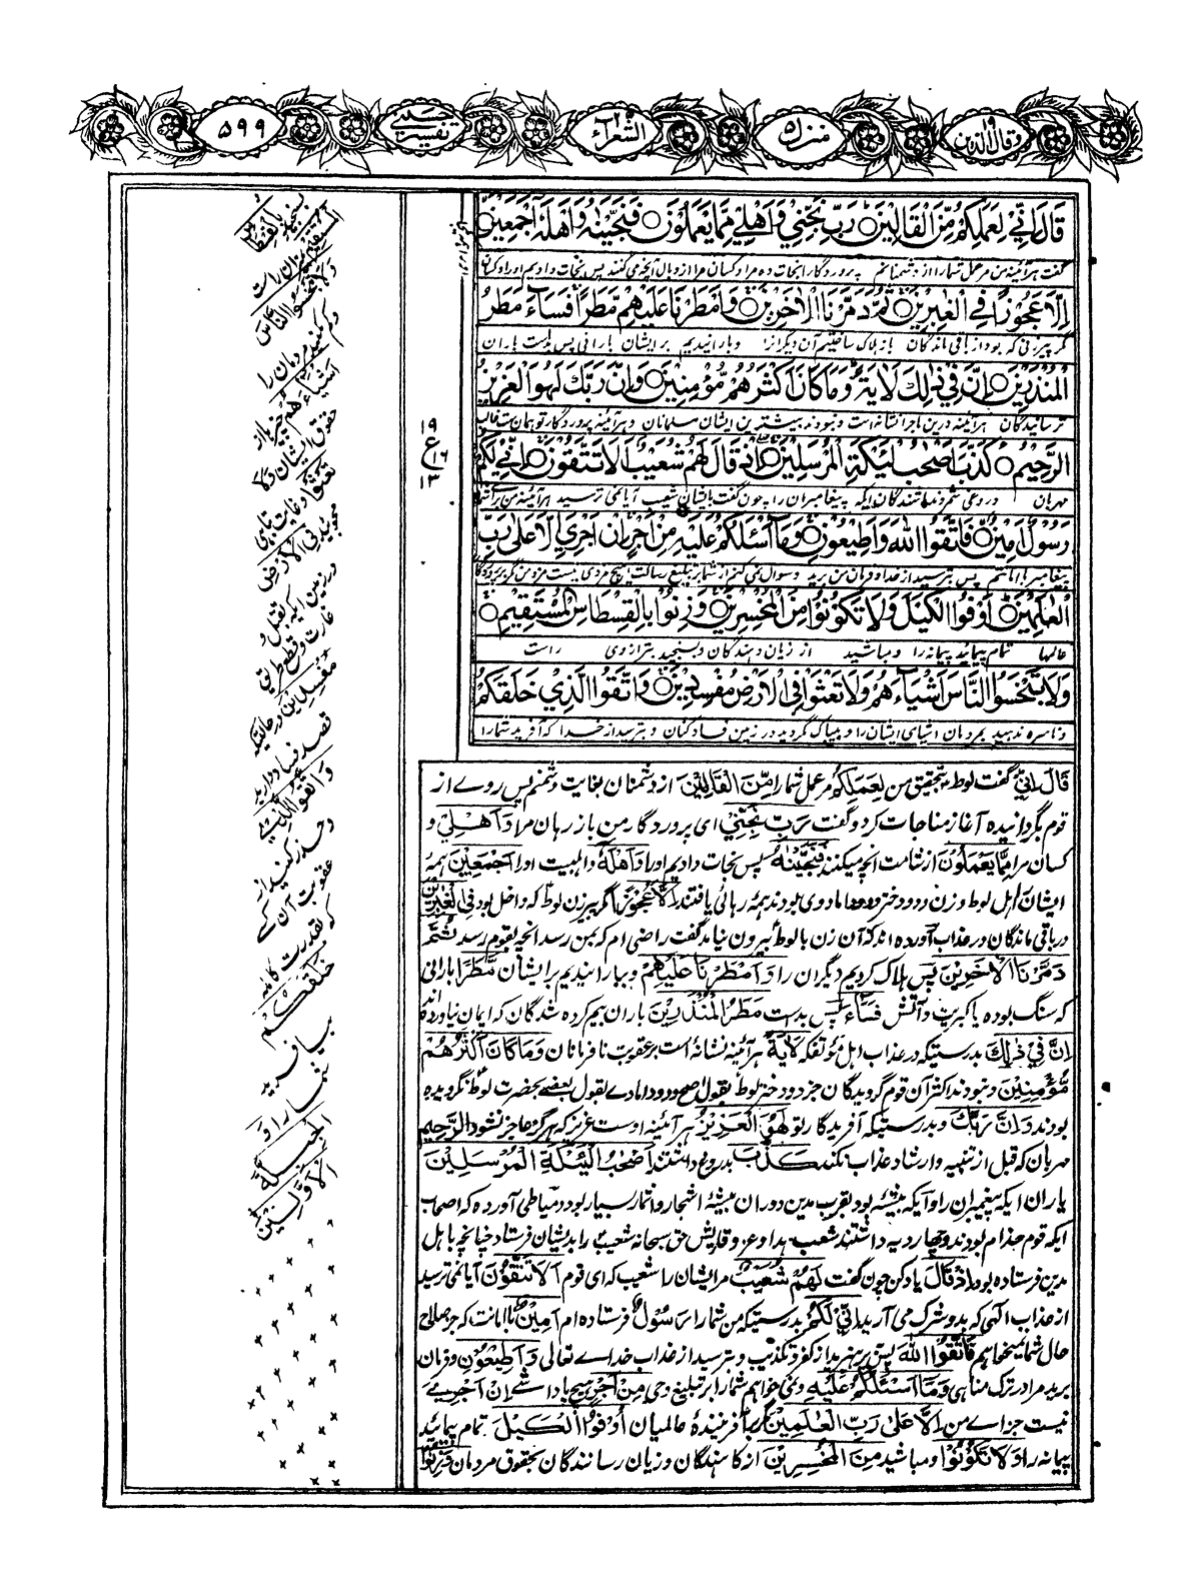 وقال الذین ۱۹
منزل ۵
الشعراء
تفسیر حسینی
۵۹۹
قَالَ اِنِّیْ لِعَمَلِکُمْ مِّنَ الْقَالِیْنَ رَبِّ نَجِّنِیْ وَاَهْلِیْ مِمَّا یَعْمَلُوْنَ فَنَجَّیْنٰهُ وَاَهْلَهٗ اَجْمَعِیْنَ
گفت هرآئینه من مر عمل شما را از دشمنانم پروردگارا نجات ده مرا و کسان مرا از وبال آنچه می کنند پس نجات دادیم او را و کسان
اِلَّا عَجُوْزًا فِی الْغٰبِرِیْنَ ثُمَّ دَمَّرْنَا الْاٰخَرِیْنَ وَاَمْطَرْنَا عَلَیْهِمْ مَّطَرًا فَسَآءَ مَطَرُ
مگر پیرزنی که بود از باقی ماندگان باز هلاک ساختیم آن دیگران را وبارانیدیم بر ایشان بارانی پس بد است باران
الْمُنْذَرِیْنَ اِنَّ فِیْ ذٰلِكَ لَاٰیَةً وَّمَا کَانَ اَکْثَرُهُمْ مُّؤْمِنِیْنَ وَاِنَّ رَبَّكَ لَهُوَ الْعَزِیْزُ
ترسانیدگان هرآئینه درین ماجرا نشانه است و نبودند بیشترین ایشان مسلمانان و هرآئینه پروردگار تو همان ست غالب
الرَّحِیْمُ کَذَّبَ اَصْحٰبُ لْئَیْکَةِ الْمُرْسَلِیْنَ اِذْ قَالَ لَهُمْ شُعَیْبٌ اَلَا تَتَّقُوْنَ اِنِّیْ لَکُمْ
مهربان دروغی شمردند باشندگان ایکه پیغامبران را چون گفت بایشان شعیب آیا نمی ترسید هرآئینه من برائے شما
رَسُوْلٌ اَمِیْنٌ فَاتَّقُوا اللّٰهَ وَاَطِیْعُوْنِ وَمَآ اَسْـَٔلُکُمْ عَلَیْهِ مِنْ اَجْرٍ اِنْ اَجْرِیَ اِلَّا عَلٰی رَبِّ
پیغامبر با امانتم پس بترسید از خدا و فرمان من برید و سوال نمی کنم از شما بر تبلیغ رسالت هیچ مزدی نیست مزد من مگر بر پروردگار
الْعٰلَمِیْنَ اَوْفُوا الْکَیْلَ وَلَا تَکُوْنُوْا مِنَ الْمُخْسِرِیْنَ وَزِنُوْا بِالْقِسْطَاسِ الْمُسْتَقِیْمِ
عالمها تمام پیمائید پیمانه را و مباشید از زیان دهندگان و بسنجید بترازوی راست
وَلَا تَبْخَسُوا النَّاسَ اَشْیَآءَهُمْ وَلَا تَعْثَوْا فِی الْاَرْضِ مُفْسِدِیْنَ وَاتَّقُوا الَّذِیْ خَلَقَکُمْ
و ناسره ندهید بمردمان اشیای ایشان را و بیباک مگردید در زمین فساد کنان و بترسید از خدا که آفرید شما را
۱۹
ع
۱۶
۱۳
قَالَ اِنِّیْ گفت لوط بتحقیق من لِعَمَلِکُمْ مر عمل شما را مِّنَ الْقَالِیْنَ از دشمنان بغایت دشمنم پس روے از
قوم بگردانیده آغاز مناجات کرد و گفت رَبِّ نَجِّنِیْ ای پروردگار من باز رهان مرا وَاَهْلِیْ و
کسان مرا مِمَّا یَعْمَلُوْنَ از شامت انچه میکنند فَنَجَّیْنٰهُ پس نجات دادیم او را وَاَهْلَهٗ و اهلبیت او را اَجْمَعِیْنَ همهٔ
ایشان اهل لوط و زن و دو دختر و داماد وی بودند همه رهائی یافتند اِلَّا عَجُوْزًا مگر پیرزن لوط که داخل بود فِی الْغٰبِرِیْنَ
در باقی ماندگان در عذاب آورده اند که آن زن با لوط بیرون نیامد گفت راضی ام که بمن رسد انچه بقوم رسد ثُمَّ
دَمَّرْنَا الْاٰخَرِیْنَ پس هلاک کردیم دیگران را وَاَمْطَرْنَا عَلَیْهِمْ و ببارانیدیم بر ایشان مَّطَرًا بارانی
که سنگ بوده یا کبریت و آتش فَسَآءَ پس بدست مَطَرُ الْمُنْذَرِیْنَ باران بیم کرده شدگان که ایمان نیاورده اند
اِنَّ فِیْ ذٰلِكَ بدرستیکه در عذاب اهل مؤتفکه لَاٰیَةً هرآئینه نشانه است بر عقوبت نافرمانان وَمَا کَانَ اَکْثَرُهُمْ
مُّؤْمِنِیْنَ و نبودند اکثر آن قوم گرویدگان جز دو دختر لوط بقول اصح و دو داماد بے بقول بعضے بحضرت لوط نگرویده
بودند وَاِنَّ رَبَّكَ و بدرستیکه آفریدگار تو لَهُوَ الْعَزِیْزُ هرآئینه اوست عزیز که هرگز عاجز نشود الرَّحِیْمُ
مهربان که قبل از تنبیه و ارشاد عذاب نکند کَذَّبَ بدروغ داشتند اَصْحٰبُ الْئَیْکَةِ الْمُرْسَلِیْنَ
یاران ایکه پیغمبران را و ایکه بیشه بود بقرب مدین دوران بیشه اشجار و اثمار بسیار بود و دمیاطی آورده که اصحاب
ایکه قوم جذام بودند و چهار دیه داشتند شعیب بدا و عز و قلایش حق سبحانه شعیب را بدیشان فرستاد چنانچه باهل
مدین فرستاده بود اِذْ قَالَ یاد کن چون گفت لَهُمْ شُعَیْبٌ مر ایشان را شعیب که ای قوم اَلَا تَتَّقُوْنَ آیا نمی ترسید
از عذاب الٰهی که بدو شرک می آرید اِنِّیْ لَکُمْ بدرستیکه من شما را رَسُوْلٌ فرستاده ام اَمِیْنٌ با امانت که جز صلاح
حال شما نمیخواهم فَاتَّقُوا اللّٰهَ پس پرهیزید از کفر و تکذیب و بترسید از عذاب خداے تعالی وَاَطِیْعُوْنِ و فرمان
برید مرا در ترک مناهی وَمَآ اَسْـَٔلُکُمْ عَلَیْهِ و نمی خواهم شما را بر تبلیغ وحی مِنْ اَجْرٍ هیچ پاداشے اِنْ اَجْرِیَ
نیست جزاے من اِلَّا عَلٰی رَبِّ الْعٰلَمِیْنَ مگر بر آفرینندهٔ عالمیان اَوْفُوا الْکَیْلَ تمام پیمائید
پیمانه را وَلَا تَکُوْنُوْا و مباشید مِنَ الْمُخْسِرِیْنَ از کاهندگان و زیان رسانندگان بحقوق مردمان وَزِنُوْا
بسنجید بِالْقِسْطَاسِ
الْمُسْتَقِیْمِ بمیزان راست
وَلَا تَبْخَسُوا النَّاسَ
و کم مکنید مردمان را
اَشْیَآءَهُمْ چیزها از
حقوق ایشان وَلَا
تَعْثَوْا و غایت تباهی
مجوئید فِی الْاَرْضِ
در زمین ایکه بقتل و
غارت و قطع طریق
مُفْسِدِیْنَ در حالتیکه
قصد فساد دارید
وَاتَّقُوا الَّذِیْ
و حذر کنید از
عقوبت آن کسے
که بقدرت کامله
خَلَقَکُمْ
بیافرید
شما را وَ
الْجِبِلَّةَ
الْاَوَّلِیْنَ